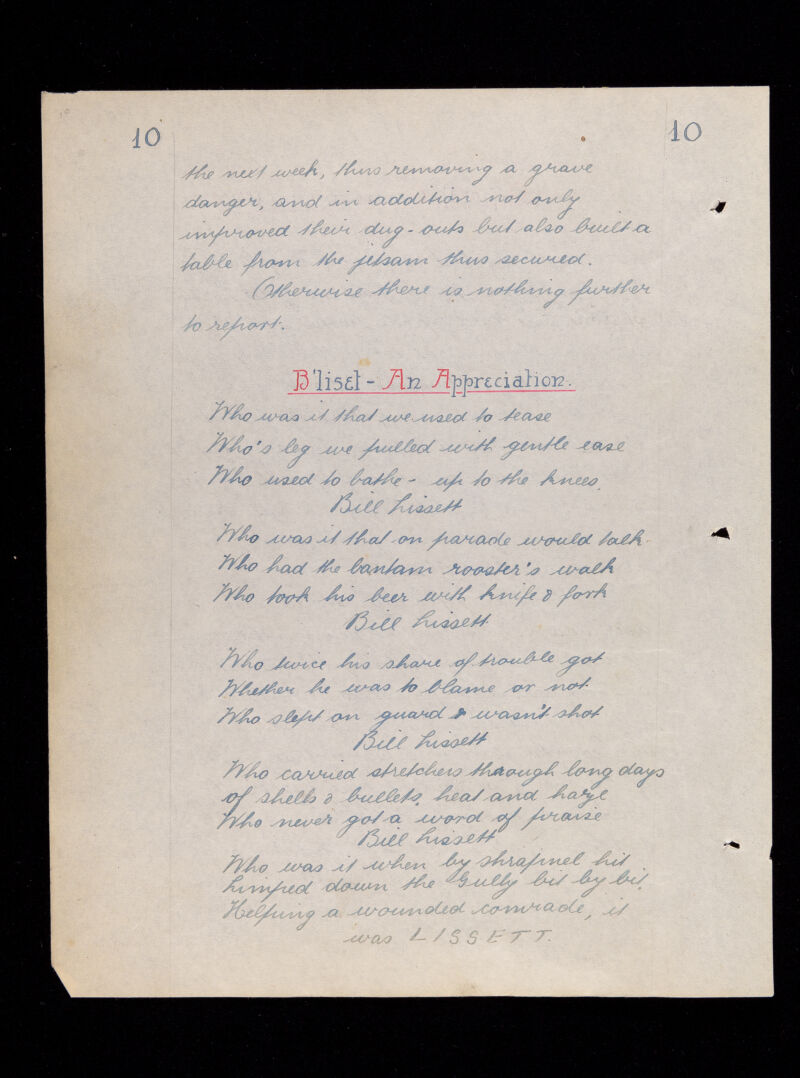 10
10
the next week, thus removing a grave
danger, and in addition not only
improved their dug-outs but also built a
table from the jetsam thus secured.
Otherwise there is nothing further
to report.
B'liset - An Appreciation.
Who was it that we used to tease
Who's leg we pulled with gentle ease
Who used to bathe - up to the knees.
Bill Lissett
Who was it that on parade would talk.
Who had the bantam rooster's walk
Who took his beer with knife & fork
Bill Lissett
Who twice his share of trouble got
Whether he was to blame or not.
Who slept on guard & wasn't shot
Bill Lissett
Who carried stretchers through long days
of shells & bullets, heat and haze
Who never got a word of praise
Bill Lissett
Who was it when by shrapnel hit
Limped down the Gully bit by bit.
Helping a wounded comrade, it
was LISSETT.